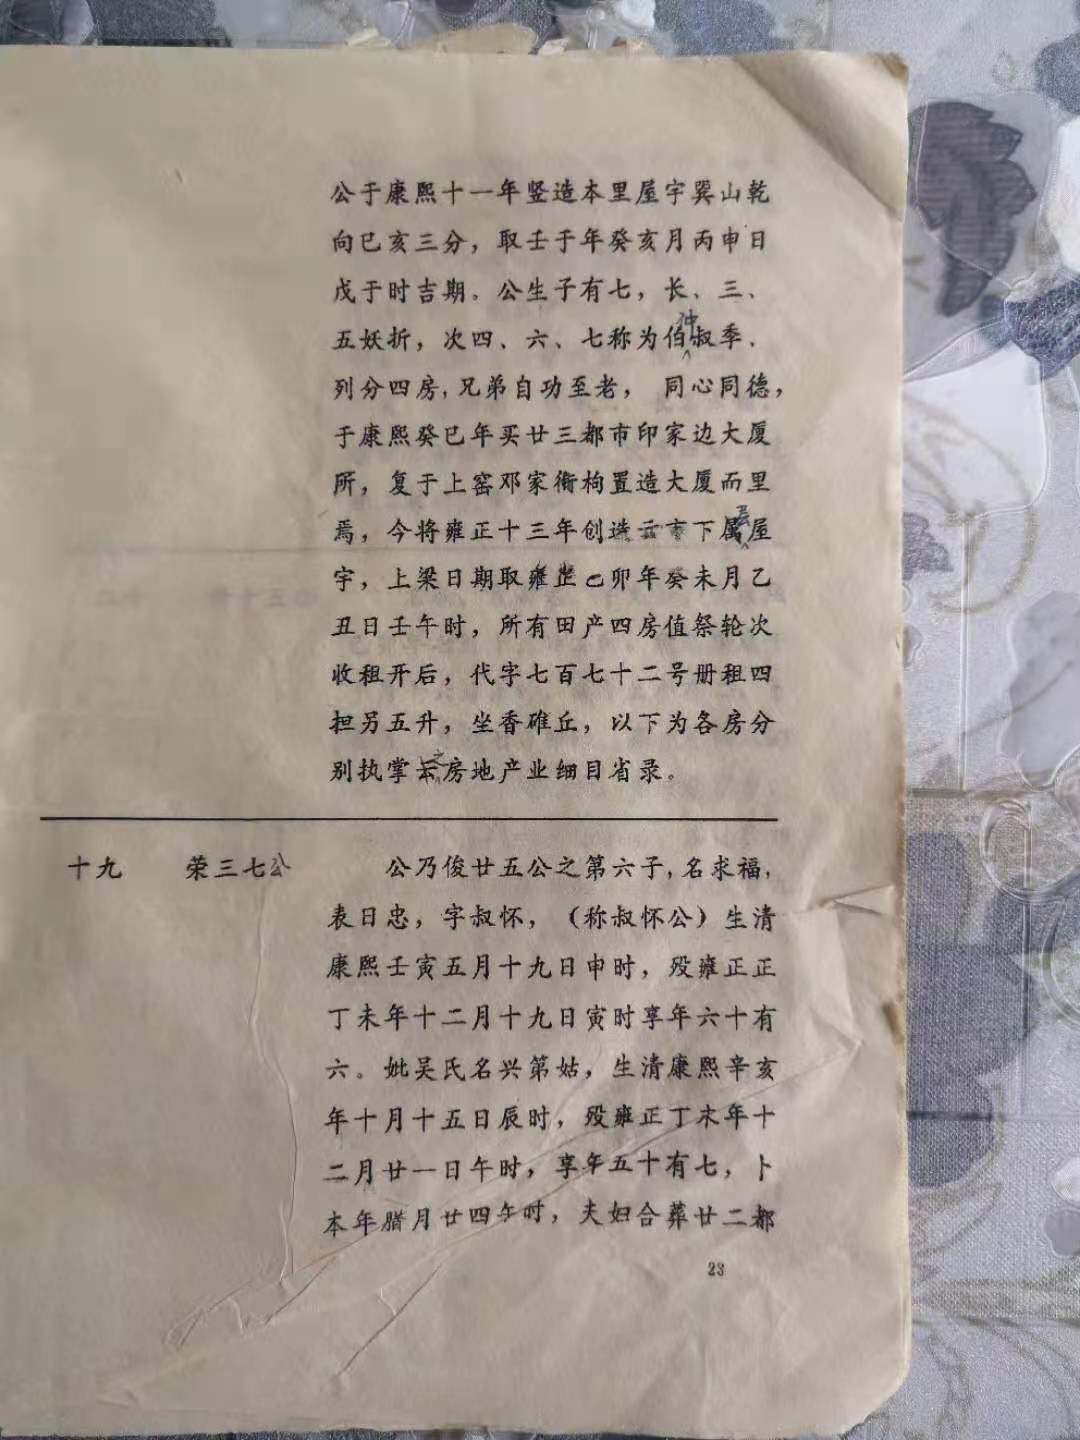 公于康熙十一年竖造本里屋宇巽山乾
向巳亥三分，取壬于年癸亥月丙申日
戊于时吉期。公生子有七，长、三、
五妖折，次四、六、七称为伯仲叔季、
列分四房，兄弟自功至老， 同心同德，
于康熙癸巳年买廿三都市印家边大厦
所，复于上窑邓家衕枸置造大厦而里
焉，今将雍正十三年创造 市下属屋
宇，上梁日期取雍正己卯年癸未月乙
丑日壬午时，所有田产四房值祭轮次
收租开后，代字七百七十二号册租四
担另五升，坐香碓丘，以下为各房分
别执掌之房地产业细目省录。
十九 荣三七公 公乃俊廿五公之第六子，名求福，
表日忠，字叔怀，（称叔怀公）生清
康熙壬寅五月十九日申时，殁雍正正
丁未年十二月十九日寅时享年六十有
六。妣吴氏名兴第姑，生清康熙辛亥
年十月十五日辰时，殁雍正丁未年十
二月廿一日午时，享年五十有七，卜
本年腊月廿四午时，夫妇合葬廿二都
23